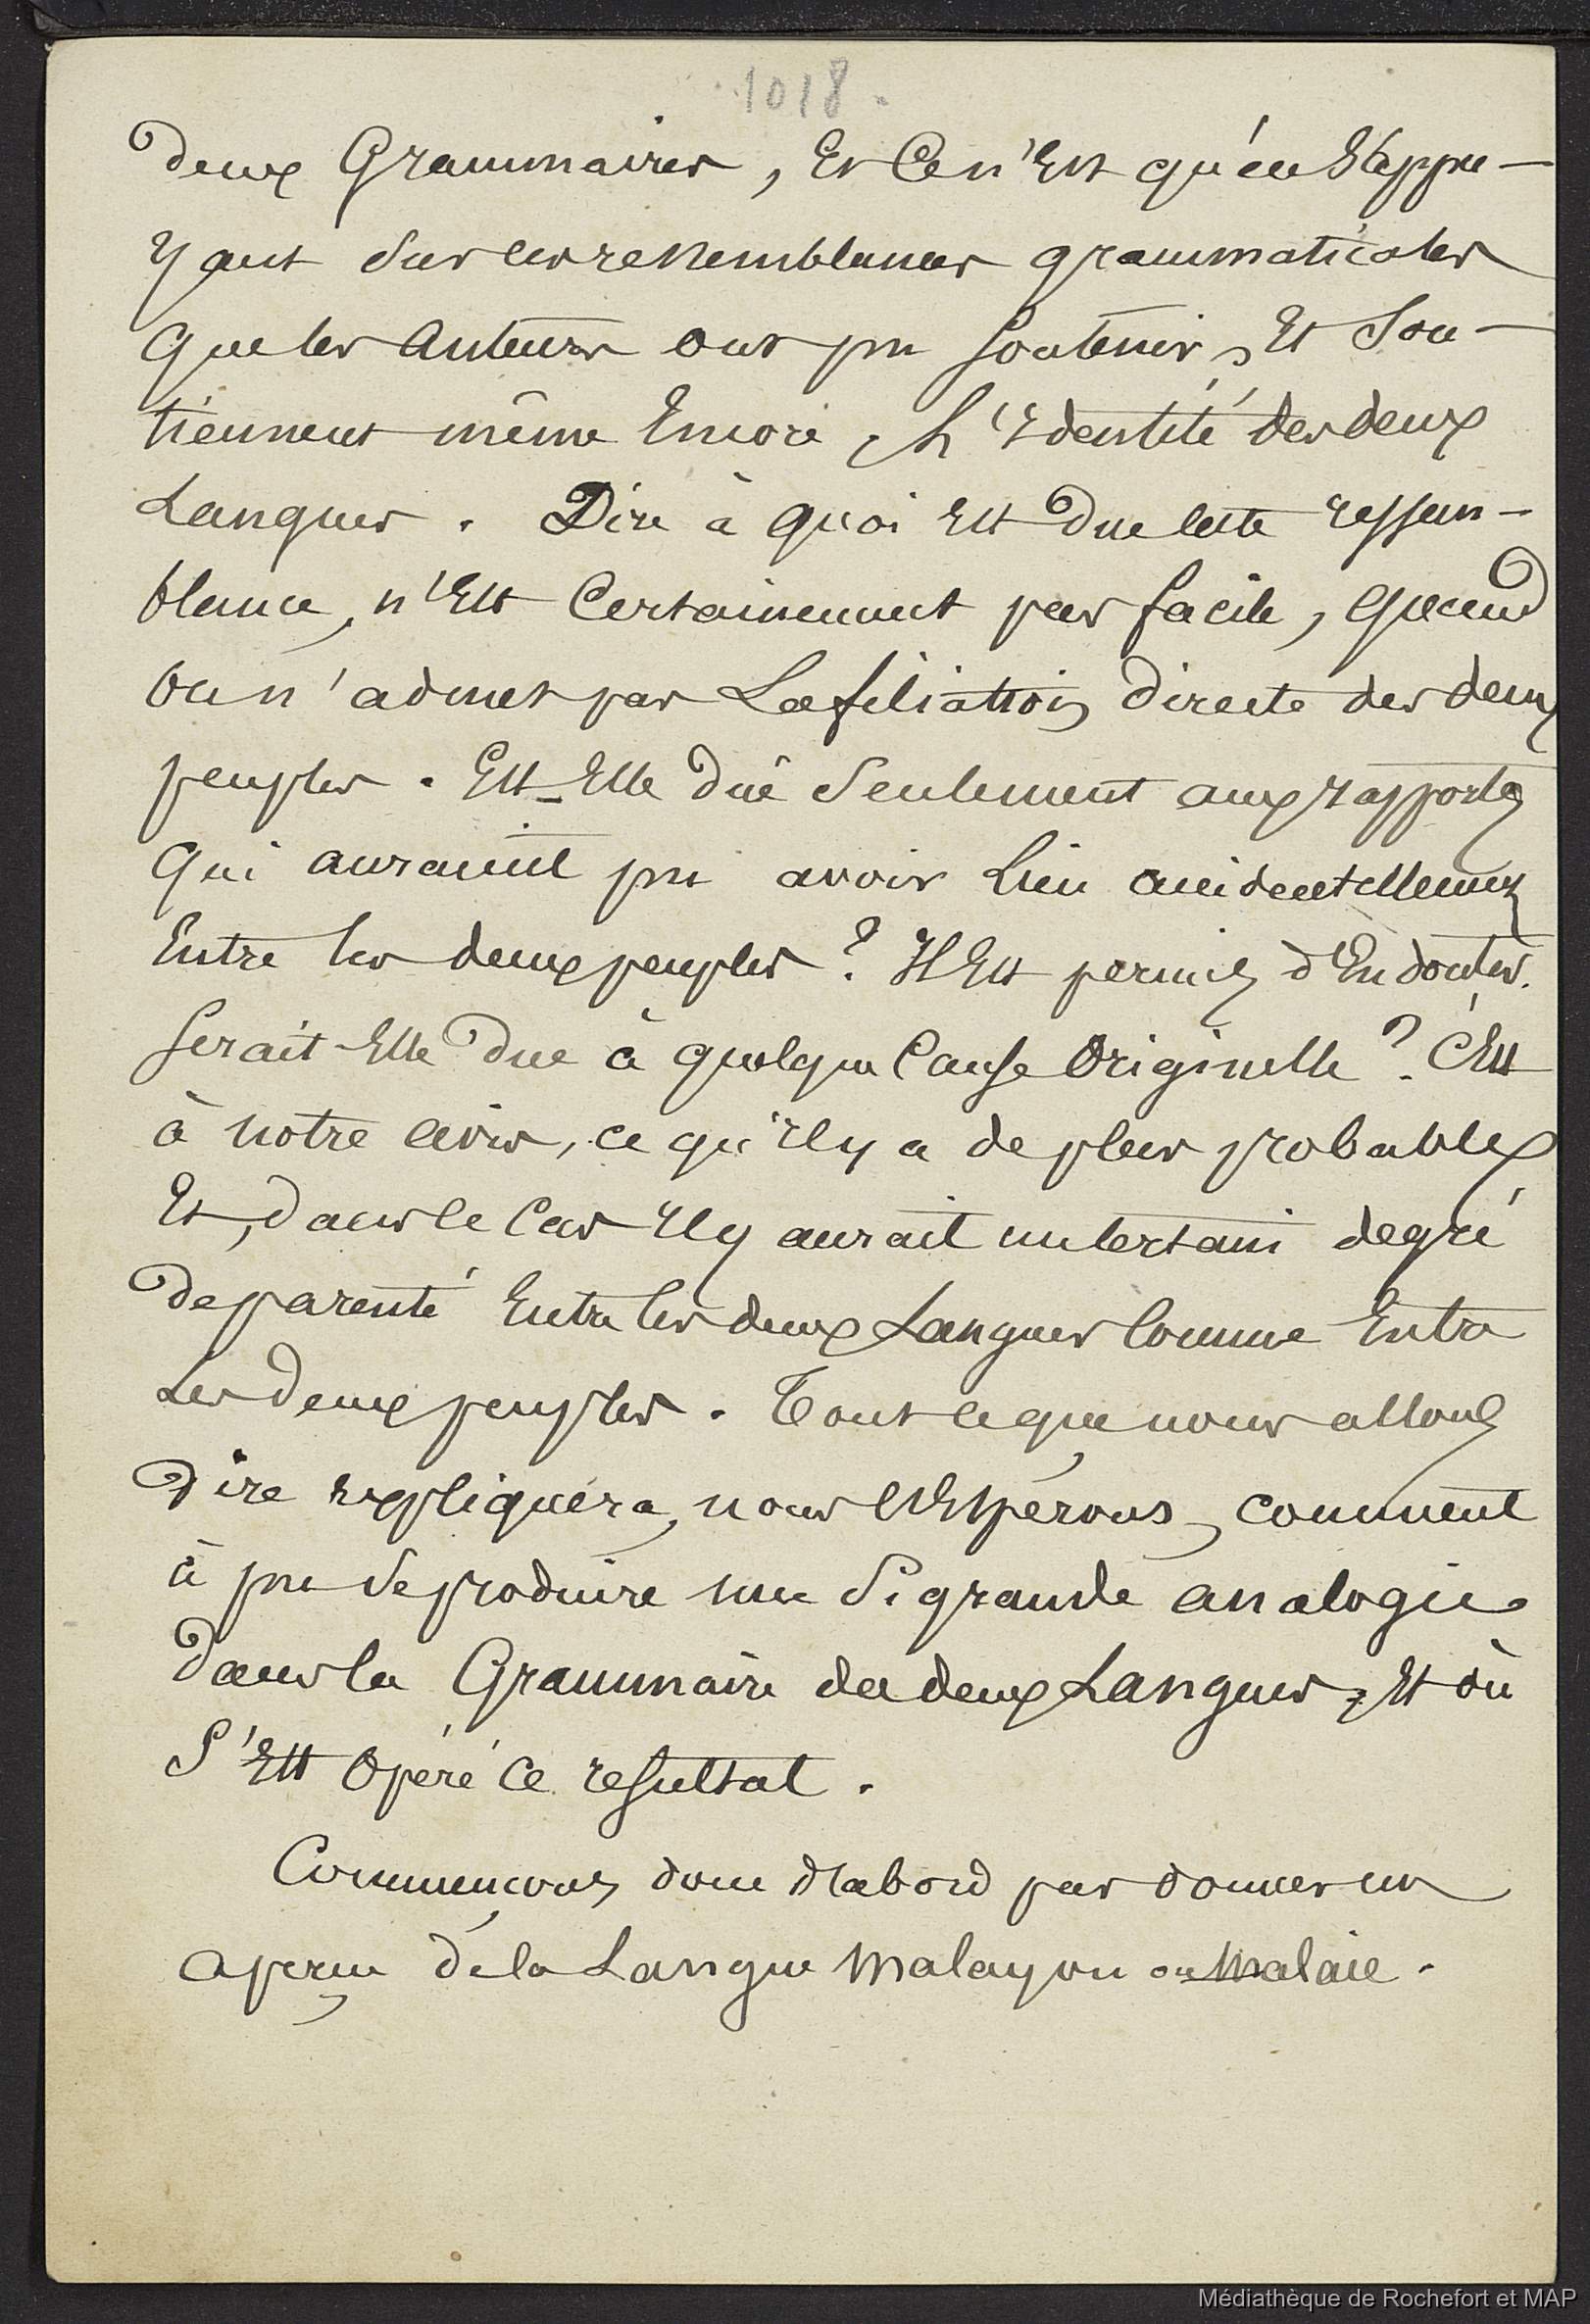 1018.
deux Grammaires, Et Ce n'Est qu'en S'appu-
yant sur les ressemblances grammaticales
que les auteurs ont pu soutenir, Et Sou-
tiennent même Encore, L'Identité des deux
Langues. Dire à quoi Est Due cette ressem-
blance, n'Est Certainement pas facile, quand
on n'admet pas La filiation Directe des deux
peuples. Est-Elle Dûe Seulement aux rapports
qui auraient pu avoir Lieu accidentellement
Entre les deux peuples? Il Est permis d'En douter.
Serait-Elle Due à quelque Cause Originelle? C'Est
à notre avis, ce qu'Il y a de plus probable
Et, dans ce Cas Il y aurait un certain degré
de parenté Entre les deux Langues Comme Entre
Les Deux peuples. Tout ce que nous allons
Dire expliquera, nous l'Espérons, comment
à pu Se produire une Si grande analogie
Dans la Grammaire des deux Langues, Et où
S'Est Opéré Ce resultat.
Commençons donc d'abord par donner un
aperçu de la Langue Malayou ou Malaie.
Médiathèque de Rochefort et MAP